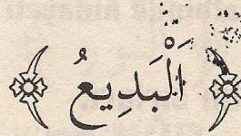 ﴿ اَلْبَدِيعُ ﴾